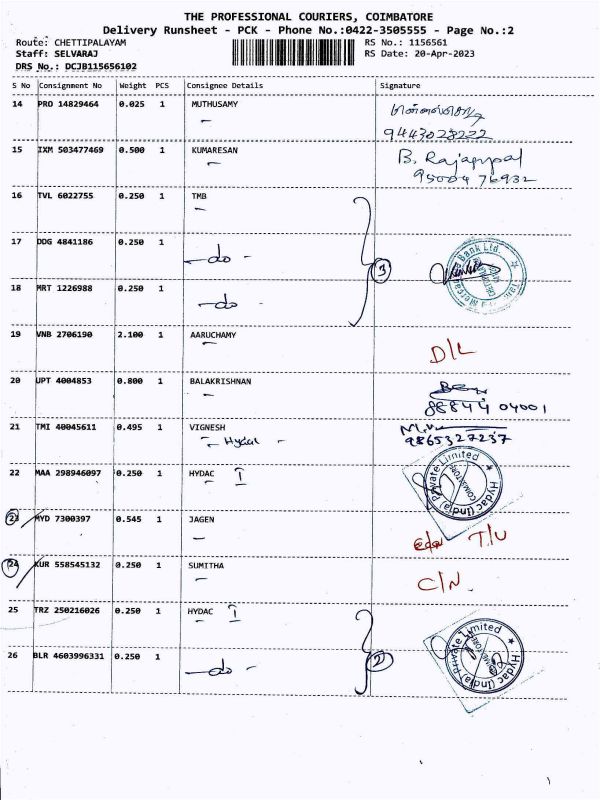 THE PROFESSIONAL COURIERS, COIMBATORE
Delivery Runsheet - PCK - Phone No.:0422-3505555 - Page No.:2
Route: CHETTIPALAYAM RS No.: 1156561
Staff: SELVARAJ RS Date: 20-Apr-2023
DRS No.: DCJB115656102
S No Consignment No Weight PCS Consignee Details Signature
14 PRO 14829464 0.025 1 MUTHUSAMY
9443028222
15 IXM 503477469 0.500 1 KUMARESAN B. Rajappal
95004 76932
16 TVL 6022755 0.250 1 TMB
17 DDG 4841186 0.250 1 -do- 3
Bank Ltd.
18 MRT 1226988 0.250 1 -do-
19 VNB 2706190 2.100 1 AARUCHAMY D/L
20 UPT 4004853 0.800 1 BALAKRISHNAN
88844 04001
21 TMI 40045611 0.495 1 VIGNESH
- Hydac - 9865327237
22 MAA 298946097 0.250 1 HYDAC I Hydac (India) Private Limited COIMBATORE
23 MYD 7300397 0.545 1 JAGEN T/U
24 KUR 558545132 0.250 1 SUMITHA C/N.
25 TRZ 250216026 0.250 1 HYDAC I Hydac (India) Private Limited COIMBATORE
26 BLR 4603996331 0.250 1 -do- 2